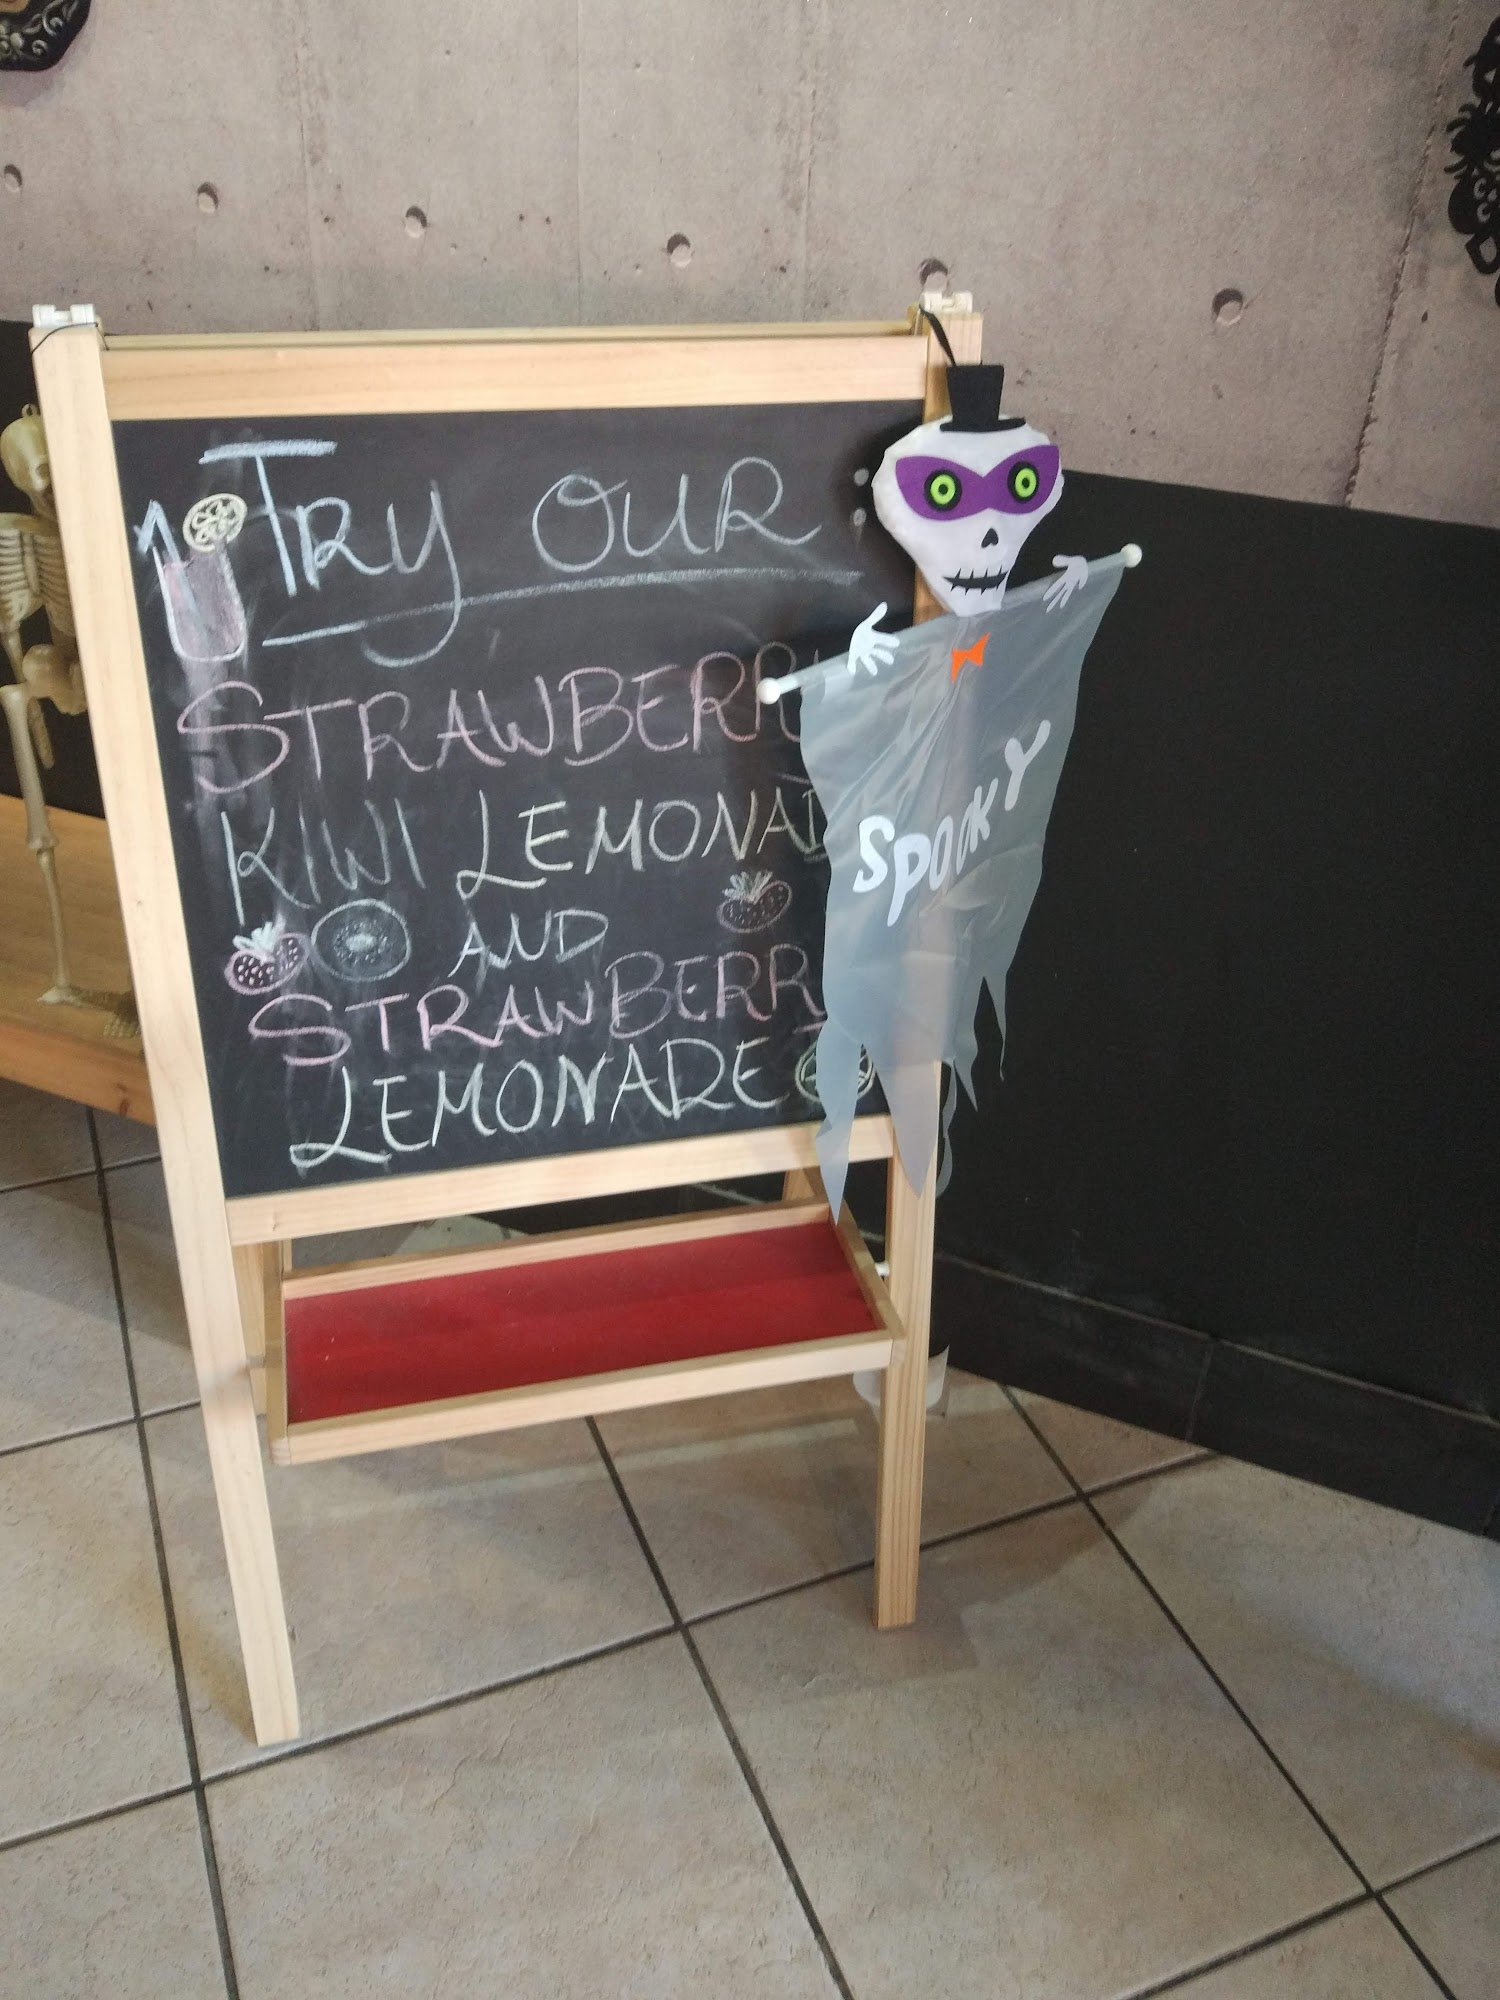 TRY OUR
STRAWBERR
KIWI LEMONAD
AND
STRAWBERR
LEMONADE
SPOOKY